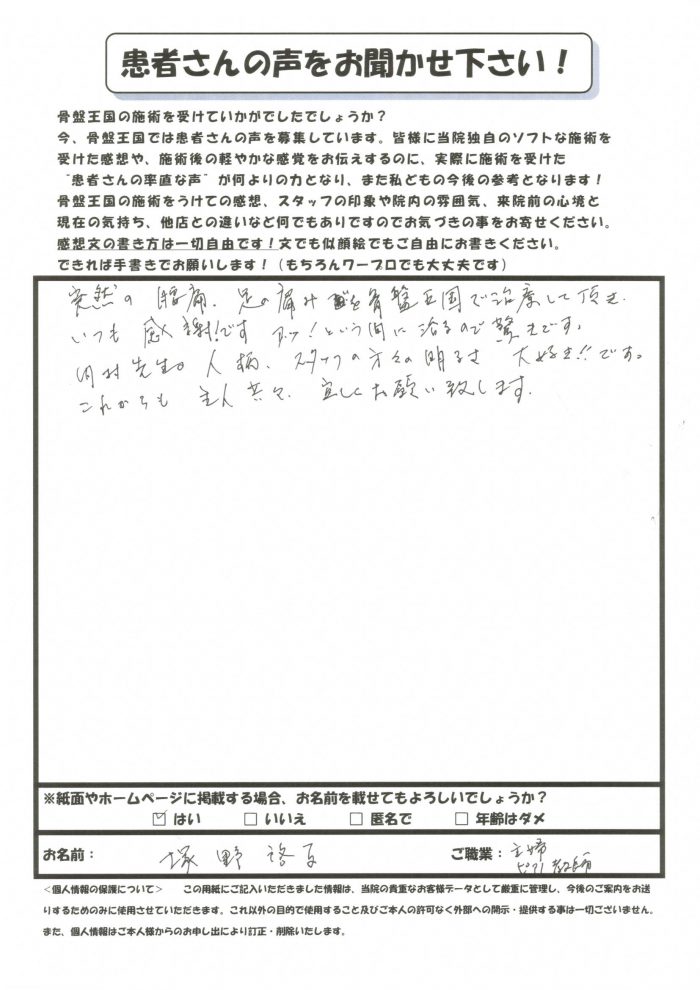 患者さんの声をお聞かせ下さい！
骨盤王国の施術を受けていかがでしたでしょうか？
今、骨盤王国では患者さんの声を募集しています。皆様に当院独自のソフトな施術を
受けた感想や、施術後の軽やかな感覚をお伝えするのに、実際に施術を受けた
“患者さんの率直な声”が何よりの力となり、また私どもの今後の参考となります！
骨盤王国の施術をうけての感想、スタッフの印象や院内の雰囲気、来院前の心境と
現在の気持ち、他店との違いなど何でもありですのでお気づきの事をお寄せください。
感想文の書き方は一切自由です！文でも似顔絵でもご自由にお書きください。
できれば手書きでお願いします！（もちろんワープロでも大丈夫です）
突然の腰痛、足の痛み を骨盤王国で治療して頂き、
いつも感謝!です アッ!という間に治るので驚きです。
先生の人柄、スタッフの方々の明るさ 大好き!!です。
これからも主人共々、宜しくお願い致します。
※紙面やホームページに掲載する場合、お名前を載せてもよろしいでしょうか？
はい いいえ 匿名で 年齢はダメ
お名前： 塚野 ご職業： 主婦
ピアノ教師
＜個人情報の保護について＞ この用紙にご記入いただきました情報は、当院の貴重なお客様データとして厳重に管理し、今後のご案内をお送
りするためのみに使用させていただきます。これ以外の目的で使用すること及びご本人の許可なく外部への開示・提供する事は一切ございません。
また、個人情報はご本人様からのお申し出により訂正・削除いたします。